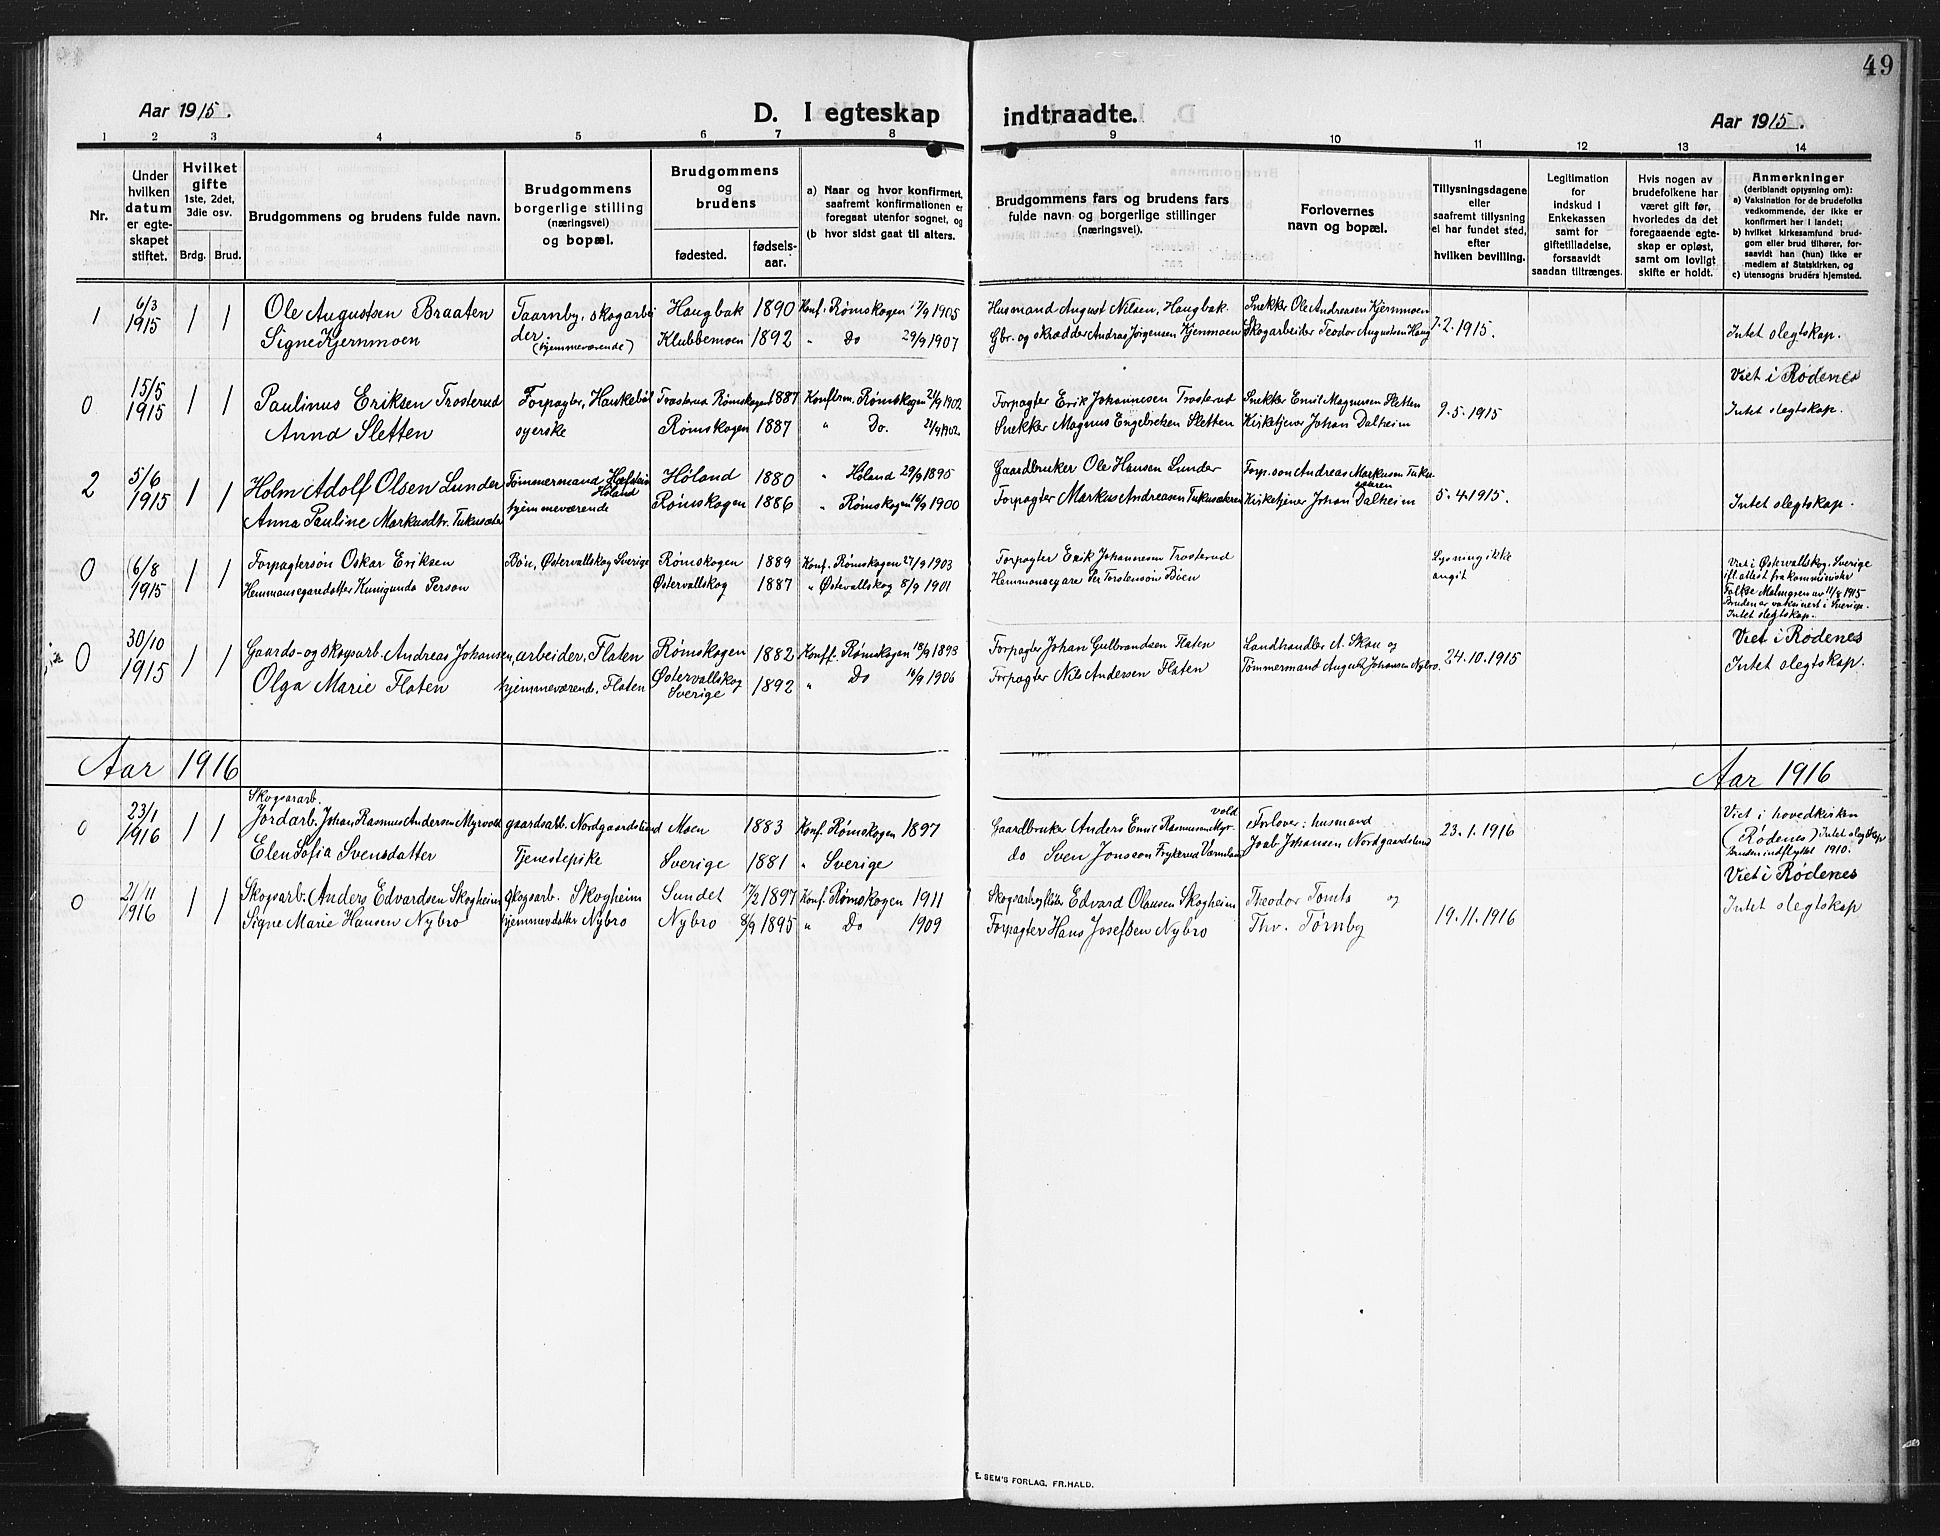 49
Aar 1915.
D. I egteskap indtraadte.
Aar 1915.
1 2 3 4 5 6 7 8 9 10 11 12 13 14
Nr.
Under hvilken datum er egte-skapet stiftet.
Hvilket gifte 1ste, 2det, 3die osv.
Brdg. Brud.
Brudgommens og brudens fulde navn.
Brudgommens borgerlige stilling (næringsvei) og bopæl.
Brudgommens og brudens
fødested. fødsels-aar.
a) Naar og hvor konfirmert, saafremt konfirmationen er foregaat utenfor sognet, og
(b hvor sidst gaat til alters.
Brudgommens fars og brudens fars fulde navn og borgerlige stillinger (næringsvei).
Forlovernes navn og bopæl.
Tillysningsdagene eller saafremt tillysning ei har fundet sted, efter hvilken bevilling.
Legitimation for indskud i Enkekassen samt for giftetilladelse, forsaavidt saadan tiltrænges.
Hvis nogen av brudefolkene har været gift før, hvorledes da det foregaaende egte-skap er opløst, samt om lovligt skifte er holdt.
Anmerkninger (deriblandt opjysning om):
a) Vaksination for de brudefolks vedkommende, der ikke er konfirmert her i landet;
b) hvilket kirkesamfund brud-gom eller brud tilhører, for-saavidt han (hun) ikke er medlem af Statskirken, og
c) utensogns brudërs hjemsted.
1 6/3 1915 1 1 Ole Augustsen Braaten Taarnby, skogarbei Haugbak 1890 Konf. Rømskogen 17/9 1905 Husmand August Nilsen, Haugbak. Snekker Ole Andreasen Kjernmoen
Signe Kjernmoen der (hjemmeværende) Klubbemoen 1892 " Do 29/9 1907 Gbr. og skrædder Andras Jørgensen Kjernmoen Skogarbeider Teodor Augustsen Haug 7.2.1915. Intet slegtskap.
0 15/5 1915 1 1 Paulinus Eriksen Trosterud Forpagter, Trosterud Rømskogen 1887 Konfirm. Rømskogen 21/9 1902 Forpagter Erik Johannesen Trosterud Snekker Emil Magnussen Sletten 9.5.1915 Viet i Rødenes
Anna Sletten syerske Rømskogen 1887 " Do. 21/9 1902 Snekker Magnus Engebretsen Sletten Kirketjener Johan Dalheim Intet slegtskap.
2 5/6 1915 1 1 Holm Adolf Olsen Lunder Tømmermand Høland Høland 1880 " Høland 29/9 1895 Gaardbruker Ole Hansen Lunder Forp.søn Andreas Markusen
Anna Pauline Markusdtr. hjemmeværende Rømskogen 1886 " Rømskogen 16/9 1900 Forpagter Markus Andreasen Kirketjener Johan Dalheim 5.4.1915. Intet slegtskap.
0 16/8 1915 1 1 Forpagtersøn Oskar Eriksen Bøn, Østervallskog Sverige Rømskogen 1889 Konf. Rømskogen 27/9 1903 Forpagter Erik Johannesen Trosterud Lysning ikke angit
Hemmansegaredatter Kunigunda Person Østervallskog 1887 " Østervallskog 8/9 1901 Hemmansegare Per Torstensøn Böen
Viet i Østervallskog, Sverige
ifl. attest fra kommunister
Falke Malmgren av 11/8 1915
Bruden er vaksinert i Sverige.
Intet slegtskap.
0 30/10 1915 1 1 Gaards- og skogsarb. Andreas Johansen, arbeider, Flaten Rømskogen 1882 Konf. Rømskogen 18/9 1898 Forpagter Johan Gulbrandsen Flaten Landhandler A. Skau og Viet i Rødenes
Olga Marie Flaten hjemmeværende, Flaten Østervallskog Sverige 1892 " Do 16/9 1906 Forpagter Nils Andersen Flaten Tømmermand August Johansen Nybro. 24.10.1915 Intet slegtskap.
Aar 1916
Aar 1916
0 23/1 1916 1 1 Skogsarb. Jordarb. Johan Rasmus Andersen Myrvold gaardsarb. Nordgaardslund Moen 1883 Konf. Rømskogen 1897 Gaardbruker Anders Emil Rasmussen Myrvold Forlover: husmand 23.1.1916 Viet i hovedkirken
Elen Sofia Svensdatter Tjenestepike Sverige 1881 " Sverige do Sven Jonsson Frykerud Värmland Johansen Nordgaardslund (Rødenes) Intet slegtskap
Bruden indflyttet 1910.
0 21/11 1916 1 1 Skogsarb. Anders Edvardsen Skogheim Skogsarb. Skogheim Sundet 17/2 1897 Konf. Rømskogen 1911 Edvard Olausen Skogheim Theodor Tomta og Viet i Rødenes
Signe Marie Hansen Nybro hjemmevdatter Nybro Nybro 8/9 1895 " Do 1909 Forpagter Hans Josefsen Nybro Thv. Tørnby 19.11.1916 Intet slegtskap
E. SEM'S FORLAG, FR.HALD.